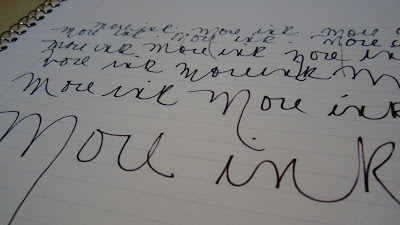 More ink. More ink. More
More ink More ink. More
More ink. More ink More ink
More ink More ink M
More ink More ink
More ink